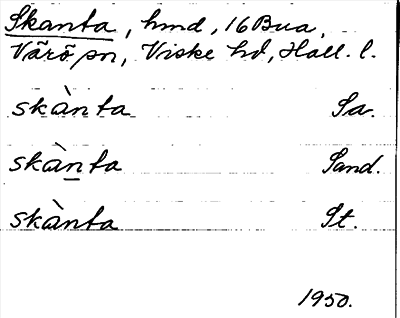 Skanta, hmd, 16 Bua,
Värö sn, Viske hd, Hall. l.
skànta Sa.
skàn̲ta Sand.
skànta St.
1950.